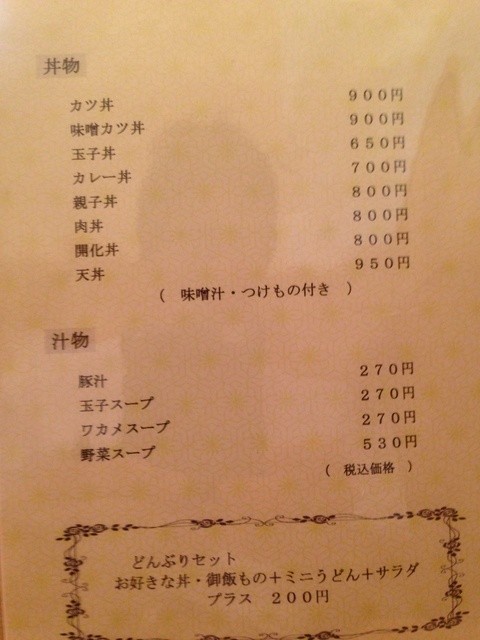 丼物
カツ丼 900円
味噌カツ丼 900円
玉子丼 650円
カレー丼 700円
親子丼 800円
肉丼 800円
開化丼 800円
天丼 950円
( 味噌汁・つけもの付き )
汁物
豚汁 270円
玉子スープ 270円
ワカメスープ 270円
野菜スープ 530円
( 税込価格 )
どんぶりセット
お好きな丼・御飯もの＋ミニうどん＋サラダ
プラス 200円